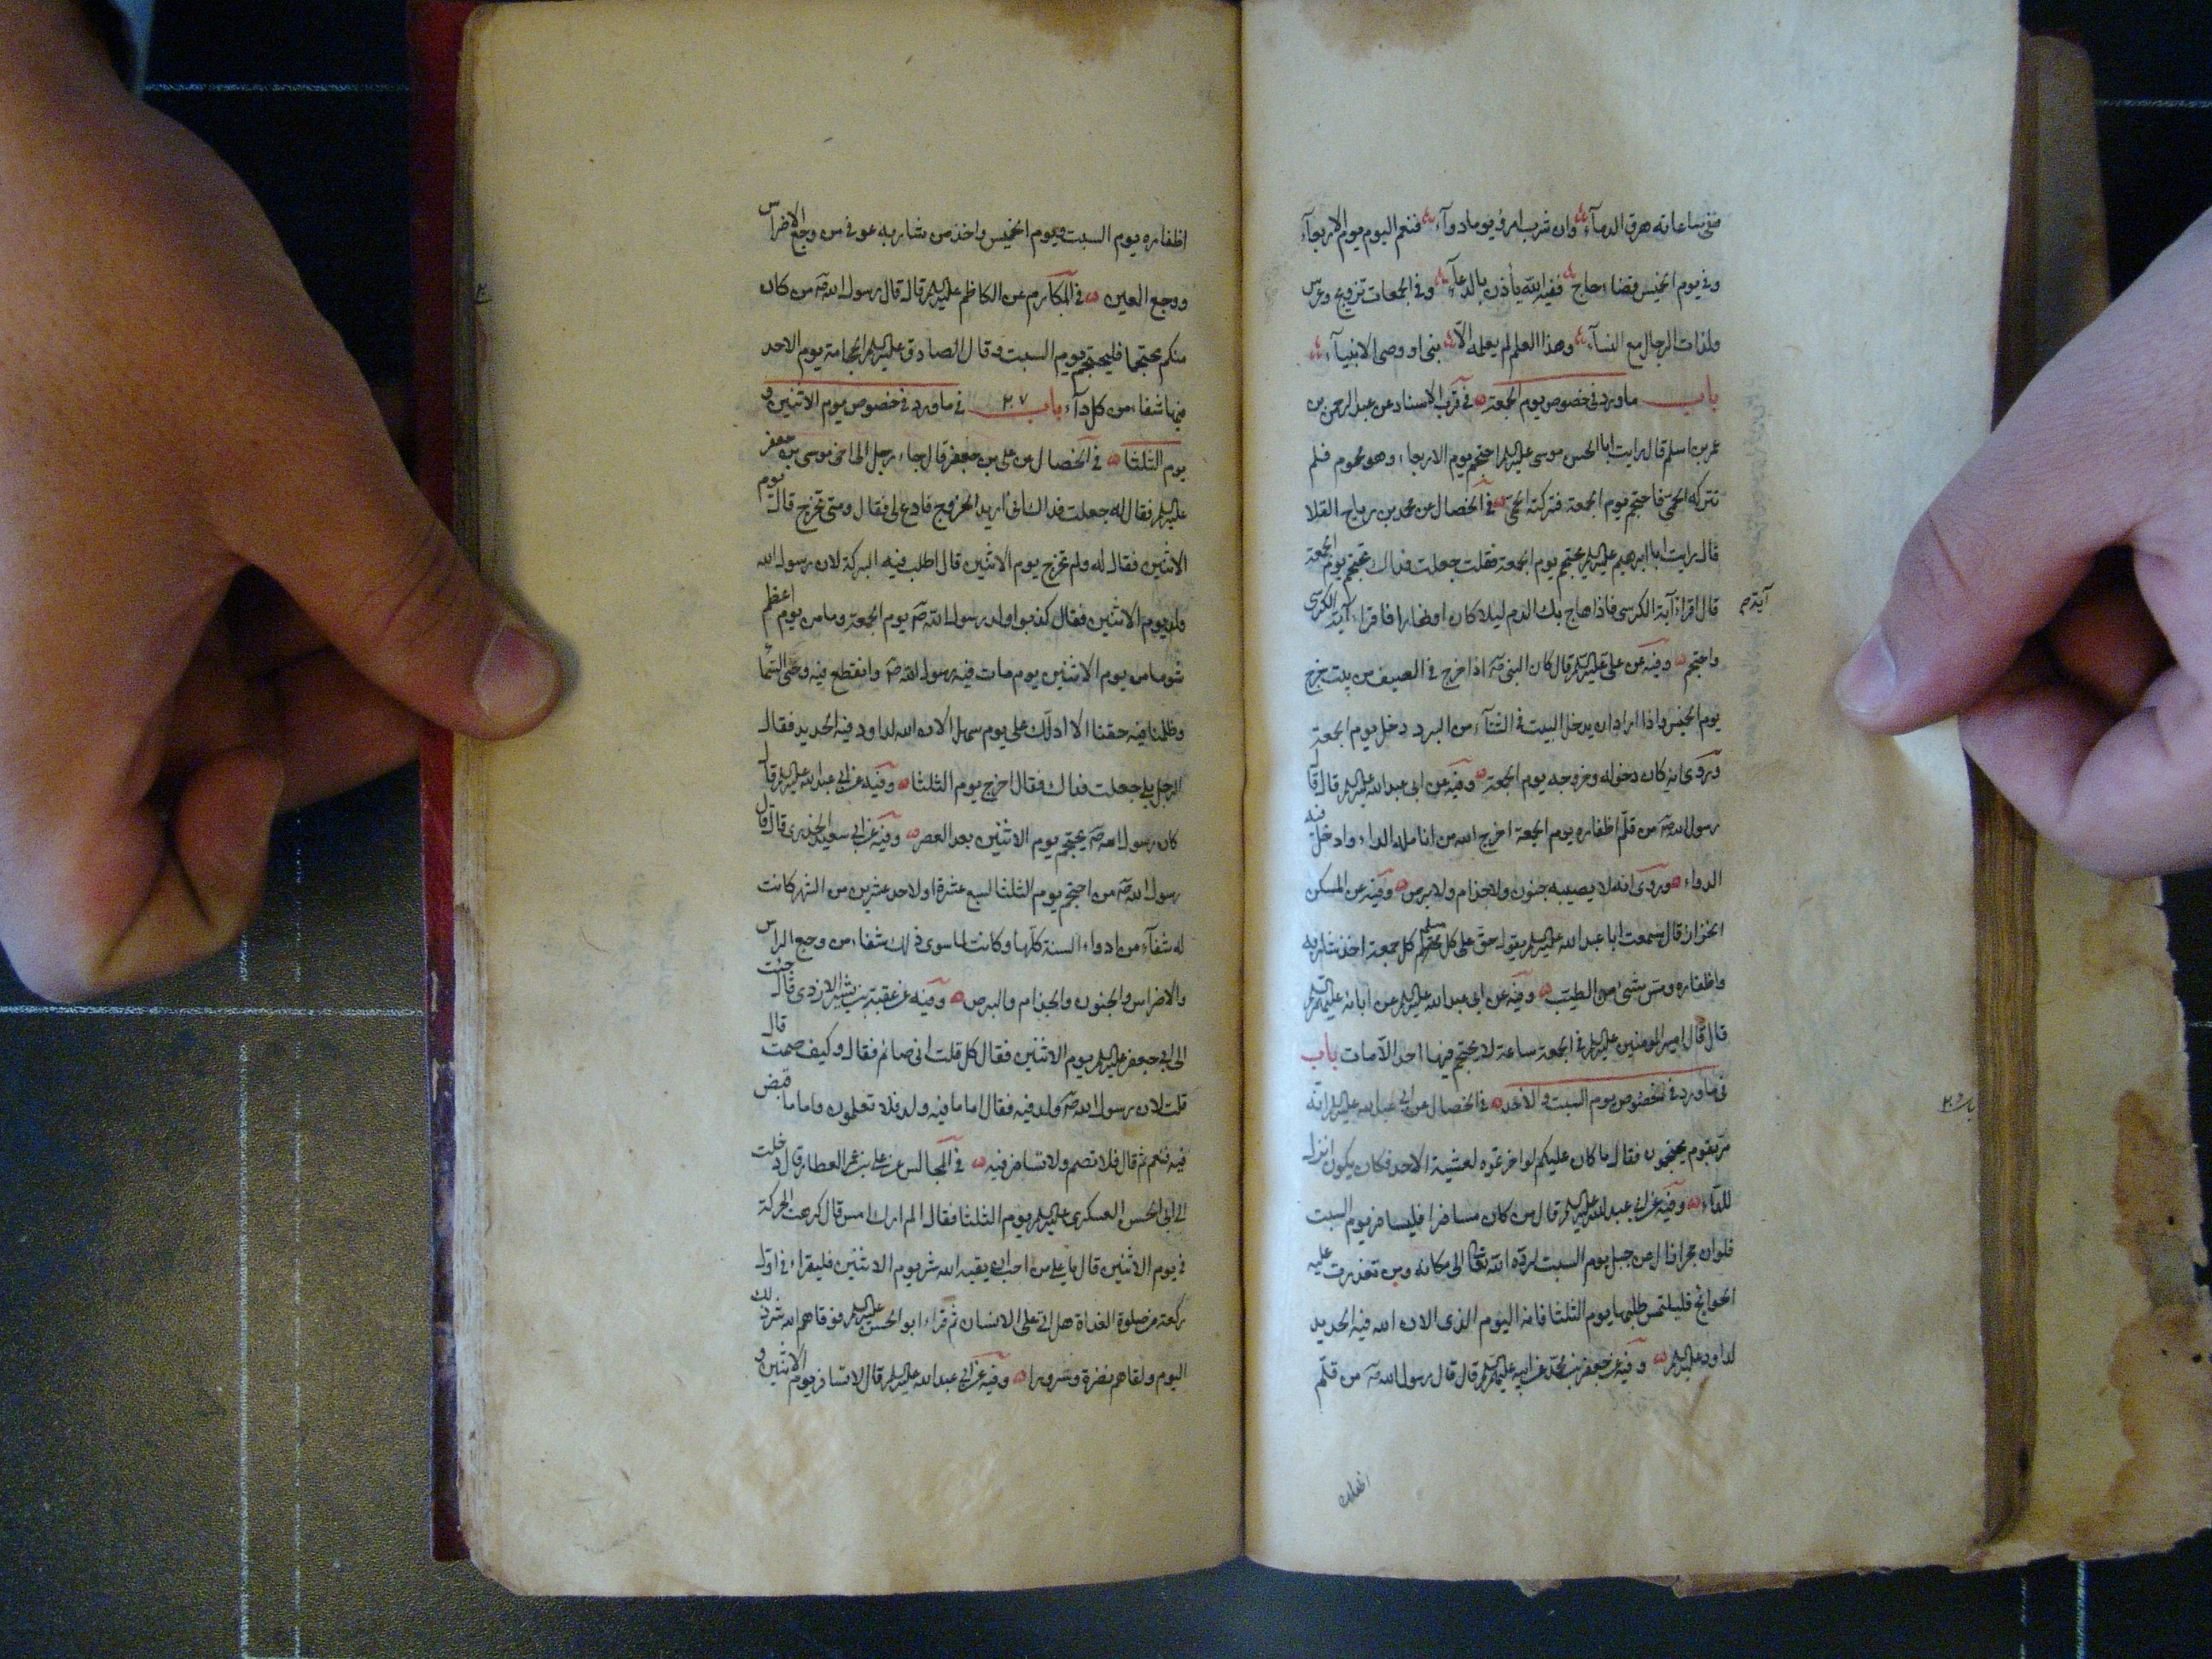 ففي ساعاته هرق الدمآء وان شرب امرؤ يوما دوآء فنعم اليوم يوم الاربعآء
وفي يوم الخميس قضاء حاج ففيه الله يأذن بالدعآء وفي الجمعات تزويج وعرس
ولذات الرجال مع النسآء وهذا العلم لم يعلمه الا نبي او وصي الانبيآء
باب ما ورد في خصوص يوم الجمعة في قرب الاسناد عن عبد الرحمن بن
عمر بن اسلم قال رايت ابا الحسن موسى عليه السلم احتجم يوم الاربعاء وهو محموم فلم
تتركه الحمى فاحتجم يوم الجمعة فتركته الحمى في الخصال عن محمد بن رباح القلا
قال رايت ابا ابرهيم عليه السلم يحتجم يوم الجمعة فقلت جعلت فداك تحتجم يوم الجمعة
قال اقرا آية الكرسي فاذا هاج بك الدم ليلا كان او نهارا فاقراء آية الكرسي
واحتجم وفيه عن علي عليه السلم قال كان النبي صه اذا خرج في الصيف من بيت خرج
يوم الخميس واذا اراد ان يدخل البيت في الشتآء من البرد دخل يوم الجمعة
وروى انه كان دخوله وخروجه يوم الجمعة وفيه عن ابي عبد الله عليه السلم قال قال
رسول الله صه من قلم اظفاره يوم الجمعة اخرج الله من انامله الداء وادخل فيه
الدواء وروى انه لا يصيبه جنون ولا جذام ولا برص وفيه عن السكن
الخزاز قال سمعت ابا عبد الله عليه السلم يقول حق على كل محتلم كل جمعة اخذ شاربه
واظفاره ومس شيء من الطيب وفيه عن ابي عبد الله عليه السلم عن ابائه عليهم السلم
قال قال امير المومنين عليه السلم في الجمعة ساعة لا يحتجم فيها احد الا مات باب
في ما ورد في خصوص يوم السبت والاحد في الخصال عن ابي عبد الله عليه السلم انه
مر بقوم يحتجمون فقال ما كان عليكم لو اخرتموه لعشية الاحد فكان يكون انزل
للداء وفيه عن ابي عبد الله عليه السلم قال من كان مسافرا فليسافر يوم السبت
فلو ان حجرا زال من جبل يوم السبت لرده الله تعالى الى مكانه ومن تعذرت عليه
الحوائج فليلتمس طلبها يوم الثلثا فانه اليوم الذي الان الله فيه الحديد
لداود عليه السلم وفيه عن جعفر بن محمد عن ابيه عليهم السلم قال قال رسول الله صه من قلم
اظفاره
اظفاره يوم السبت ويوم الخميس واخذ من شاربه عوفي من وجع الاضراس
ووجع العين في المكارم عن الكاظم عليه السلم قال قال رسول الله صه من كان
منكم محتجما فليحتجم يوم السبت وقال الصادق عليه السلم الحجامة يوم الاحد
فيها شفاء من كل دآء باب ٢٠٧ في ما ورد في خصوص يوم الاثنين و
يوم الثلثا في الخصال عن علي بن جعفر قال جاء رجل الى اخي موسى بن جعفر
عليه السلم فقال له جعلت فداك اني اريد الخروج فادع لي فقال ومتى تخرج قال يوم
الاثنين فقال له ولم تخرج يوم الاثنين قال اطلب فيه البركة لان رسول الله
ولد يوم الاثنين فقال كذبوا ولد رسول الله صه يوم الجمعة وما من يوم اعظم
شوما من يوم الاثنين يوم مات فيه رسول الله صه وانقطع فيه وحي السماء
وظلمنا فيه حقنا الا ادلك على يوم سهل الان الله لداود فيه الحديد فقال
الرجل بلى جعلت فداك فقال اخرج يوم الثلثا وفيه عن ابي عبد الله عليه السلم قال
كان رسول الله صه يحتجم يوم الاثنين بعد العصر وفيه عن ابي سعيد الخدري قال قال
رسول الله صه من احتجم يوم الثلثا لسبع عشرة او لاحد عشرين من الشهر كانت
له شفآء من ادواء السنة كلها وكانت لما سوى ذلك شفاء من وجع الراس
والاضراس والجنون والجذام والبرص وفيه عن عقبة بن بشير الازدي قال جئت
الى ابي جعفر عليه السلم يوم الاثنين فقال كل قلت اني صائم فقال وكيف صمت قال
قلت لان رسول الله صه ولد فيه فقال اما ما فيه ولد فلا تعلمون واما ما قبض
فيه فنعم ثم قال فلا تصم ولا تسافر فيه في المجالس عن علي بن عمر العطار قال دخلت
الى ابي الحسن العسكري عليه السلم يوم الثلثا فقال لم ارك امس قال كرهت الحركة
في يوم الاثنين قال يا علي من احب ان يقيه الله شر يوم الاثنين فليقراء في اول
ركعة من صلوة الغداة هل اتى على الانسان ثم قراء ابو الحسن عليه السلم فوقاهم الله شر ذلك
اليوم ولقاهم نضرة وسرورا وفيه عن ابي عبد الله عليه السلم قال لا تسافر يوم الاثنين و